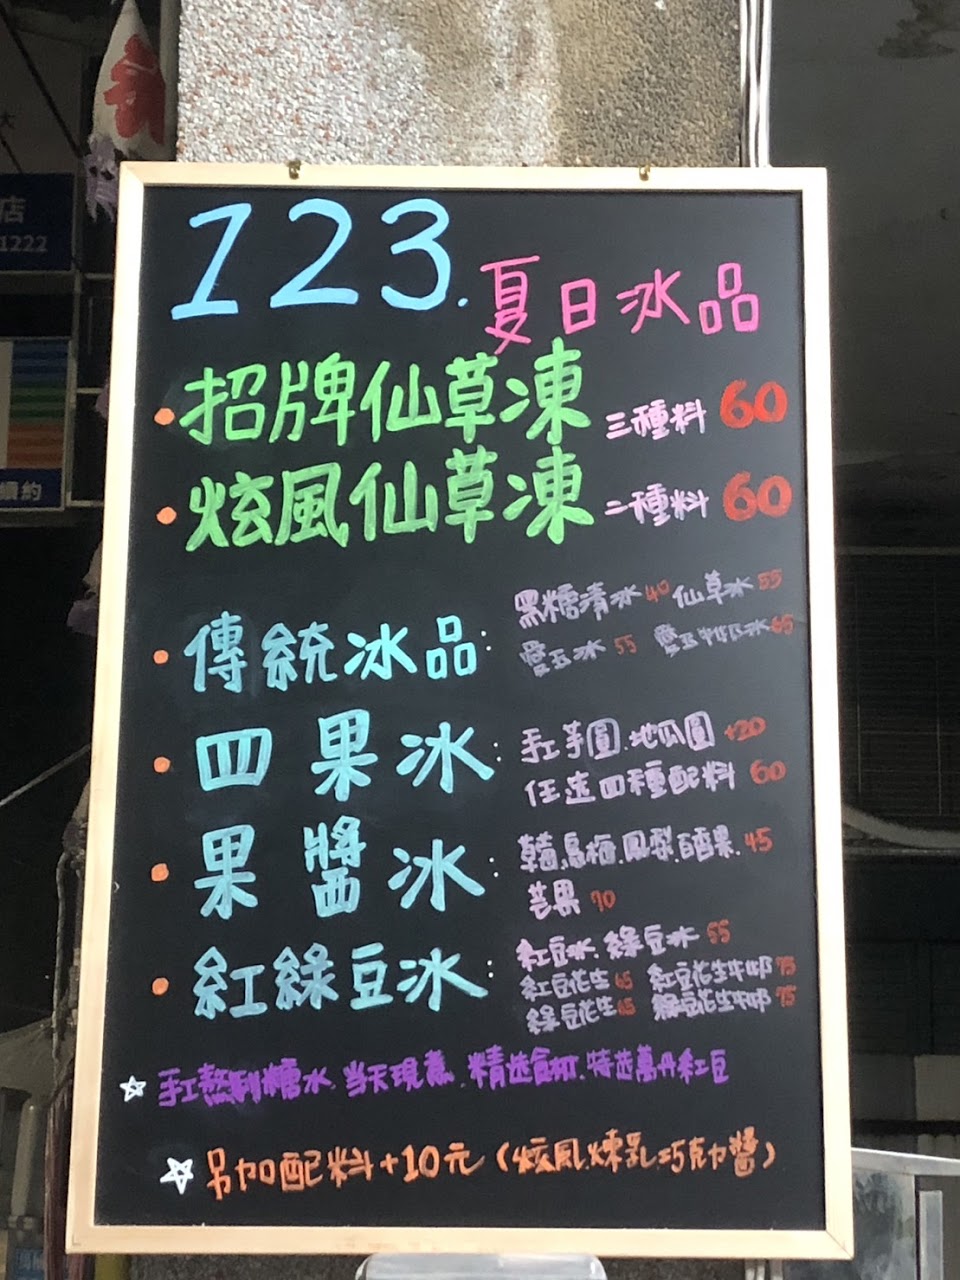 店
1222
續約
123.夏日冰品
招牌仙草凍 三種料 60
炫風仙草凍 二種料 60
傳統冰品: 黑糖清冰 40 仙草冰 55
愛玉冰 55 愛玉牛奶冰 65
四果冰: 手工芋圓.地瓜圓 +20
任選四種配料 60
果醬冰: 烏梅.鳳梨.百香果. 45
芒果 70
紅綠豆冰: 紅豆冰.綠豆冰 55
紅豆花生 65 紅豆花生牛奶 75
綠豆花生 65 綠豆花生牛奶 75
☆手工熬制糖水.当天現煮.精選食材.特選萬丹紅豆
☆另加配料+10元(炫風.煉乳.巧克力醬)